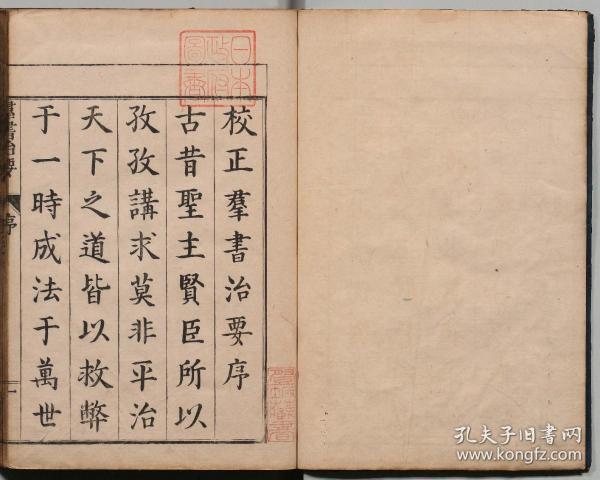 校正羣書治要序
古昔聖主賢臣所以
孜孜講求莫非平治
天下之道皆以救弊
于一時成法于萬世
羣書治要
序
一
日本
政府
圖書
孔夫子旧书网
www.kongfz.com